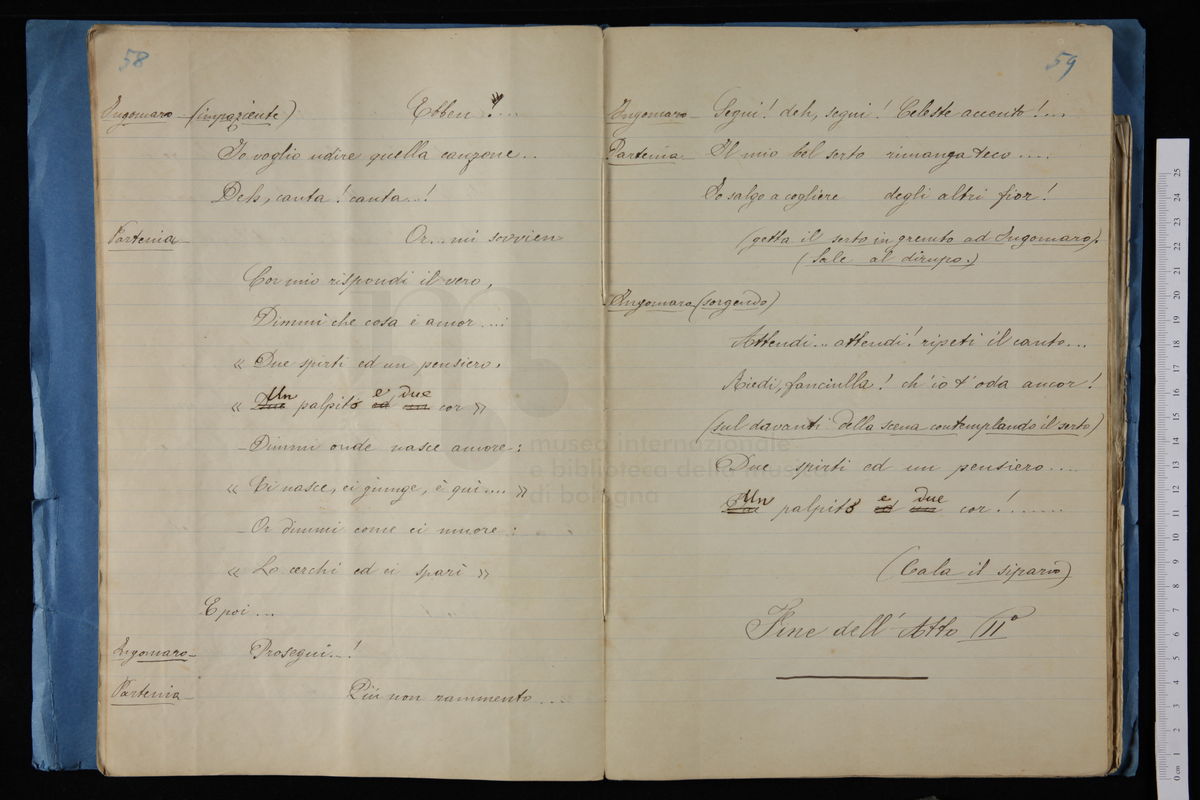 58
Ingomaro - (impaziente) Ebben!...
Io voglio udire quella canzone..
Deh, canta! canta...!
Partenia - Or... mi sovvien
Cor mio rispondi il vero,
Dimmi che cosa è amor....:
« Due spirti ed un pensiero,
« Due Un palpito ed e, un due cor »
Dimmi onde nasce amore:
« Ei nasce, ei giunge, è quì.... »
Or dimmi come ei muore:
« Lo cerchi ed ei sparì »
E poi...
Ingomaro - Prosegui...!
Partenia - Più non rammento...
59
Ingomaro - Segui! deh, segui! Celeste accento!...
Partenia - Il mio bel serto rimanga teco....
Io salgo a cogliere degli altri fior!
(getta il serto in grembo ad Ingomaro).
(Sale al dirupo.)
Ingomaro (sorgendo)
Attendi... attendi! ripeti il canto...
Riedi, fanciulla! ch'io t'oda ancor!
(sul davanti della scena contemplando il serto)
Due spirti ed un pensiero....
Due Un palpito ed e un due cor!.......
(Cala il sipario)
Fine dell'Atto II°
museo internazionale
e biblioteca della musica
di bologna
0 cm 1 2 3 4 5 6 7 8 9 10 11 12 13 14 15 16 17 18 19 20 21 22 23 24 25